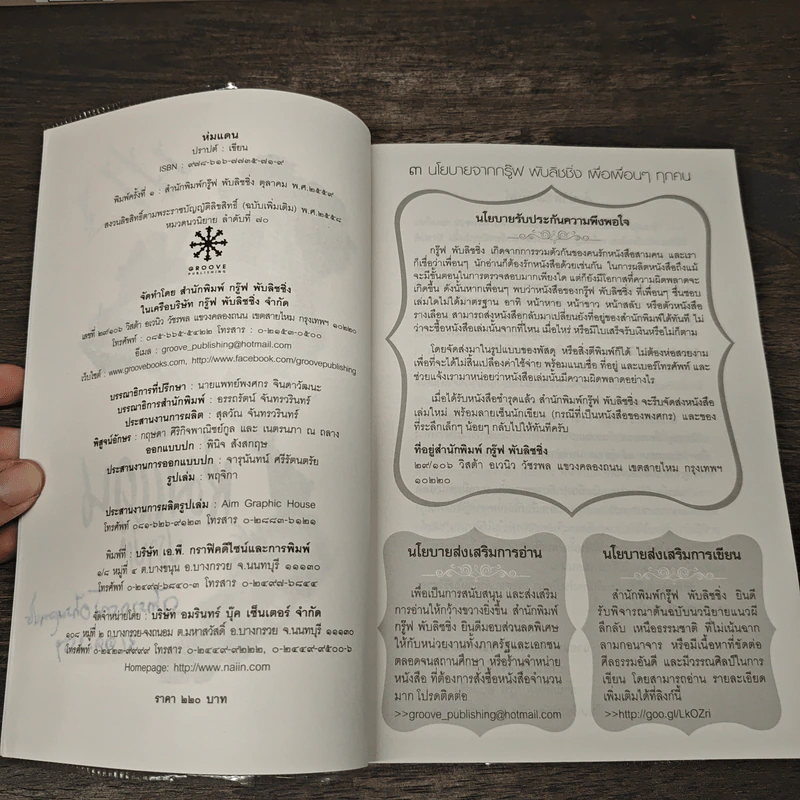 ห่มแดน
ปราปต์ : เขียน
ISBN : ๙๗๔-๖๑๖-๗๗๓๕-๗๑-๙
พิมพ์ครั้งที่ ๑ : สำนักพิมพ์กรู๊ฟ พับลิชชิ่ง ตุลาคม พ.ศ.๒๕๕๙
สงวนลิขสิทธิ์ตามพระราชบัญญัติลิขสิทธิ์ (ฉบับเพิ่มเติม) พ.ศ.๒๕๕๘
หมวดนวนิยาย ลำดับที่ ๗๐
GROOVE
PUBLISHING
จัดทำโดย สำนักพิมพ์ กรู๊ฟ พับลิชชิ่ง
ในเครือบริษัท กรู๊ฟ พับลิชชิ่ง จำกัด
เลขที่ ๒๙/๑๐๖ วิสต้า อเวนิว วัชรพล แขวงคลองถนน เขตสายไหม กรุงเทพฯ ๑๐๒๒๐
โทรศัพท์ : ๐๘๕-๖๖๕-๕๔๒๒ โทรสาร : ๐-๒๑๕๓-๐๕๐๐
อีเมล : groove_publishing@hotmail.com
เว็บไซต์ : www.groovebooks.com, http://www.facebook.com/groovepublishing
บรรณาธิการที่ปรึกษา : นายแพทย์พงศกร จินดาวัฒนะ
บรรณาธิการสำนักพิมพ์ : อรรถรัตน์ จันทรวรินทร์
ประสานงานการผลิต : สุลวัณ จันทรวรินทร์
พิสูจน์อักษร : กฤษดา ศิริกิจพาณิชย์กูล และ เนตรนภา ณ ถลาง
ออกแบบปก : พินิจ สังสกฤษ
ประสานงานการออกแบบปก : จารุนันทน์ ศรีรัตนตรัย
รูปเล่ม : พฤจิกา
ประสานงานการผลิตรูปเล่ม : Aim Graphic House
โทรศัพท์ ๐๘๑-๖๒๖-๙๑๒๓ โทรสาร ๐-๒๘๘๓-๖๑๒๑
พิมพ์ที่ : บริษัท เอ.พี. กราฟิคดีไซน์และการพิมพ์
๑/๘ หมู่ที่ ๔ ต.บางขนุน อ.บางกรวย จ.นนทบุรี ๑๑๑๓๐
โทรศัพท์ ๐-๒๔๙๗-๖๘๔๐-๓ โทรสาร ๐-๒๔๙๗-๖๘๔๔
จัดจำหน่ายโดย : บริษัท อมรินทร์ บุ๊ค เซ็นเตอร์ จำกัด
๑๐๘ หมู่ที่ ๒ ถ.บางกรวย-จงถนอม ต.มหาสวัสดิ์ อ.บางกรวย จ.นนทบุรี ๑๑๑๓๐
โทรศัพท์ ๐-๒๔๒๓-๙๙๙๙ โทรสาร ๐-๒๔๔๙-๙๒๒๒, ๐-๒๔๔๙-๙๕๐๐-๖
Homepage: http://www.naiin.com
ราคา ๒๒๐ บาท
๓ นโยบายจากกรู๊ฟ พับลิชชิ่ง เพื่อเพื่อนๆ ทุกคน
นโยบายรับประกันความพึงพอใจ
กรู๊ฟ พับลิชชิ่ง เกิดจากการรวมตัวกันของคนรักหนังสือสามคน และเรา
ก็เชื่อว่าเพื่อนๆ นักอ่านก็ต้องรักหนังสือด้วยเช่นกัน ในการผลิตหนังสือถึงแม้
จะมีขั้นตอนในการตรวจสอบมากเพียงใด แต่ก็ยังมีโอกาสที่ความผิดพลาดจะ
เกิดขึ้น ดังนั้นหากเพื่อนๆ พบว่าหนังสือของกรู๊ฟ พับลิชชิ่ง ที่เพื่อนๆ ชื่นชอบ
เล่มใดไม่ได้มาตรฐาน อาทิ หน้าหาย หน้าขาว หน้าสลับ หรือตัวหนังสือ
รางเลือน สามารถส่งหนังสือกลับมาเปลี่ยนยังที่อยู่ของสำนักพิมพ์ได้ทันที ไม่
ว่าจะซื้อหนังสือเล่มนั้นจากที่ไหน เมื่อไหร่ หรือมีใบเสร็จรับเงินหรือไม่ก็ตาม
โดยจัดส่งมาในรูปแบบของพัสดุ หรือสิ่งตีพิมพ์ก็ได้ ไม่ต้องห่อสวยงาม
เพื่อที่จะได้ไม่สิ้นเปลืองค่าใช้จ่าย พร้อมแนบชื่อ ที่อยู่ และเบอร์โทรศัพท์ และ
ช่วยแจ้งเรามาหน่อยว่าหนังสือเล่มนั้นมีความผิดพลาดอย่างไร
เมื่อได้รับหนังสือชำรุดแล้ว สำนักพิมพ์กรู๊ฟ พับลิชชิ่ง จะรีบจัดส่งหนังสือ
เล่มใหม่ พร้อมลายเซ็นนักเขียน (กรณีที่เป็นหนังสือของพงศกร) และของ
ที่ระลึกเล็กๆ น้อยๆ กลับไปให้ทันทีครับ
ที่อยู่สำนักพิมพ์ กรู๊ฟ พับลิชชิ่ง
๒๙/๑๐๖ วิสต้า อเวนิว วัชรพล แขวงคลองถนน เขตสายไหม กรุงเทพฯ
๑๐๒๒๐
นโยบายส่งเสริมการอ่าน
เพื่อเป็นการสนับสนุน และส่งเสริม
การอ่านให้กว้างขวางยิ่งขึ้น สำนักพิมพ์
กรู๊ฟ พับลิชชิ่ง ยินดีมอบส่วนลดพิเศษ
ให้กับหน่วยงานทั้งภาครัฐและเอกชน
ตลอดจนสถานศึกษา หรือร้านจำหน่าย
หนังสือ ที่ต้องการสั่งซื้อหนังสือจำนวน
มาก โปรดติดต่อ
>>groove_publishing@hotmail.com
นโยบายส่งเสริมการเขียน
สำนักพิมพ์กรู๊ฟ พับลิชชิ่ง ยินดี
รับพิจารณาต้นฉบับนวนิยายแนวผี
ลึกลับ เหนือธรรมชาติ ที่ไม่เน้นฉาก
ลามกอนาจาร หรือมีเนื้อหาที่ขัดต่อ
ศีลธรรมอันดี และมีวรรณศิลป์ในการ
เขียน โดยสามารถอ่าน รายละเอียด
เพิ่มเติมได้ที่ลิงก์นี้
>>http://goo.gl/LkOZri